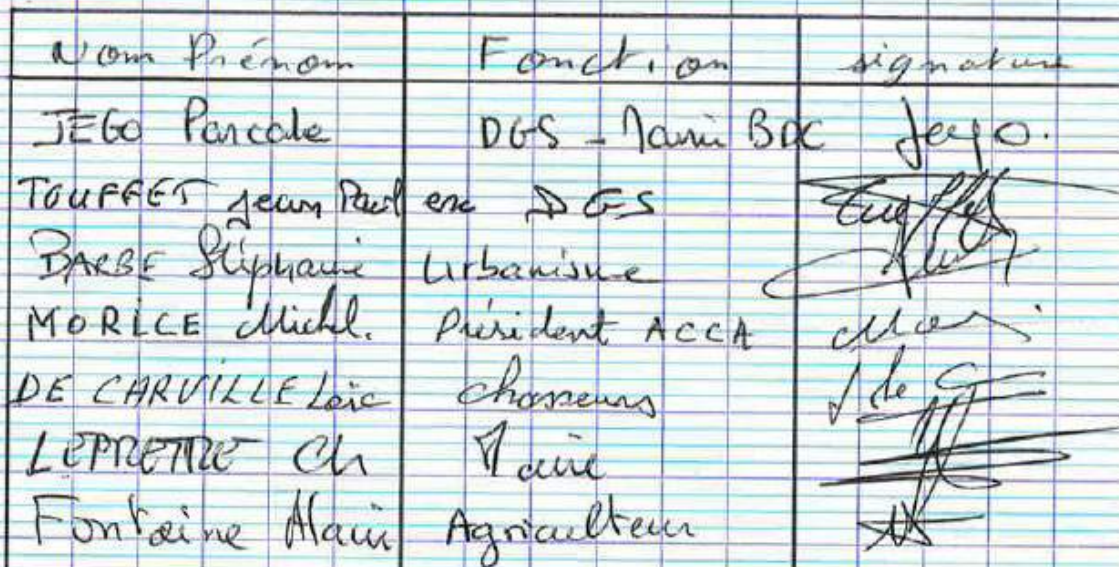 Nom Prénom Fonction signature
JEGO Pascale DGS - Mairie BDC Jego.
TOUFFET Jean Paul DGS
BARBE Stéphanie Urbanisme
MORICE Michel. Président ACCA
DE CARVILLE Loïc Chasseurs
LEPRETRE Ch Maire
Fontaine Alain Agriculteur